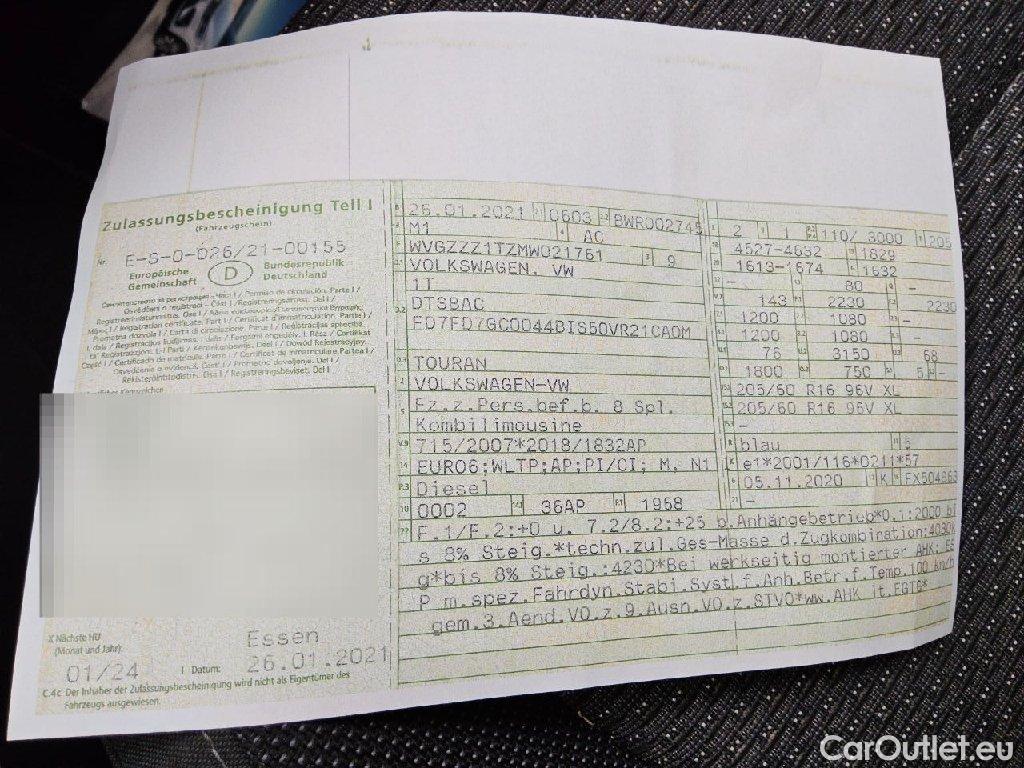 Zulassungsbescheinigung Teil I
(Fahrzeugschein)
Nr. E-S-0-026/21-00155
Europäische Gemeinschaft
D
Bundesrepublik Deutschland
X Nächste HU
(Monat und Jahr):
01/24
Essen
I Datum:
26.01.2021
C.4c Der Inhaber der Zulassungsbescheinigung wird nicht als Eigentümer des
Fahrzeugs ausgewiesen.
26.01.2021 0603 BWR002745
M1 AC
WVGZZZ1TZMW021761 9
VOLKSWAGEN, VW
1T
DTSBAC
FD7FD7GC0044BIS50VR21CA0M
TOURAN
VOLKSWAGEN-VW
Fz.z.Pers.bef.b. 8 Spl.
Kombilimousine
715/2007*2018/1832AP
EURO6;WLTP;AP;PI/CI; M, N1
Diesel
0002 36AP 1968
2 1 110/ 3000 205
4527-4632 1829
1613-1674 1632
- 80 -
143 2230 2230
1200 1080 -
1200 1080 -
76 3150 68
1800 750 5 -
205/60 R16 96V XL
205/60 R16 96V XL
-
blau 5
e1*2001/116*0211*57
05.11.2020 K FX504963
-
F.1/F.2:+0 u. 7.2/8.2:+25 b.Anhängebetrieb*O.1:2000 bi
s 8% Steig.*techn.zul.Ges-Masse d.Zugkombination:4030k
g*bis 8% Steig.:4230*Bei werkseitig montierter AHK:
P m.spez.Fahrdyn.Stabi.Systl.f.Anh.Betr.f.Temp.100 km/h
gem.3.Aend.VO.z.9.Ausn.VO.z.STVO*ww.AHK lt.EGTG*
CarOutlet.eu